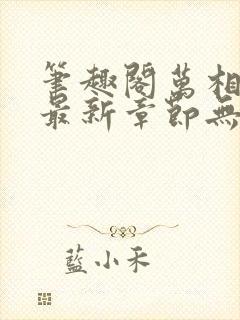 筆趣閣萬相
最新章節無
藍小禾